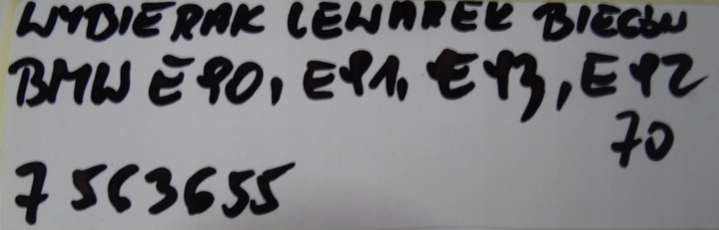 WYBIERAK LEWAREK BIEGÓW
BMW E90, E91, E93, E92
70
7563655